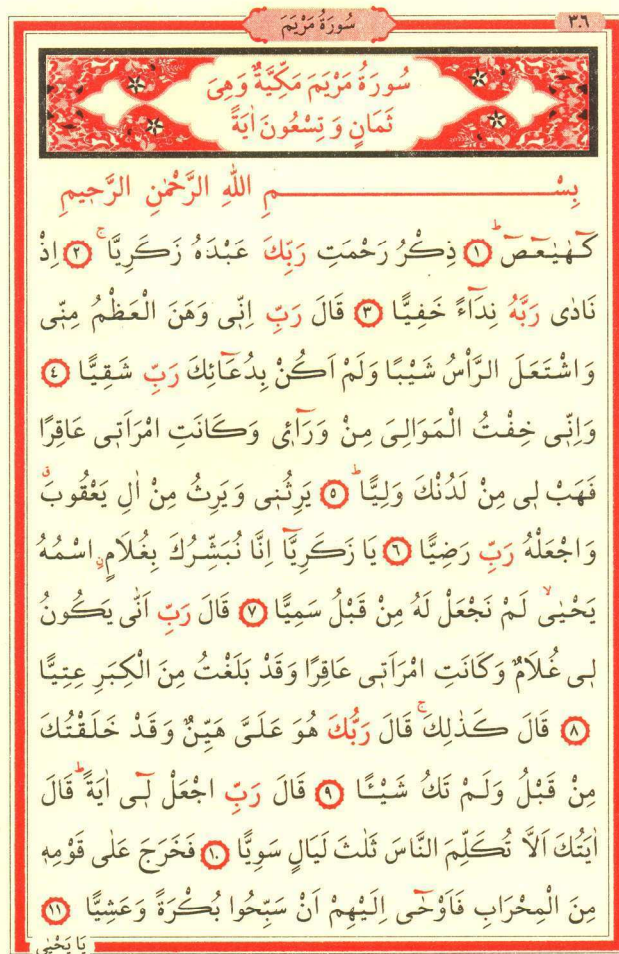 سُورَةُ مَرْيَمَ
٣٠٦
سُورَةُ مَرْيَمَ مَكِّيَّةٌ وَهِىَ
ثَمَانٍ وَتِسْعُونَ اٰيَةً
بِسْمِ اللّٰهِ الرَّحْمٰنِ الرَّحٖيمِ
كٓهٰيٰعٓصٓ ۜ ﴿١﴾ ذِكْرُ رَحْمَتِ رَبِّكَ عَبْدَهُ زَكَرِيَّا ۚ ﴿٢﴾ اِذْ
نَادٰى رَبَّهُ نِدَٓاءً خَفِيًّا ﴿٣﴾ قَالَ رَبِّ اِنّٖى وَهَنَ الْعَظْمُ مِنّٖى
وَاشْتَعَلَ الرَّاْسُ شَيْبًا وَلَمْ اَكُنْ بِدُعَٓائِكَ رَبِّ شَقِيًّا ﴿٤﴾
وَاِنّٖى خِفْتُ الْمَوَالِىَ مِنْ وَرَٓاءٖى وَكَانَتِ امْرَاَتٖى عَاقِرًا
فَهَبْ لٖى مِنْ لَدُنْكَ وَلِيًّا ۙ ﴿٥﴾ يَرِثُنٖى وَيَرِثُ مِنْ اٰلِ يَعْقُوبَ ۗ
وَاجْعَلْهُ رَبِّ رَضِيًّا ﴿٦﴾ يَا زَكَرِيَّٓا اِنَّا نُبَشِّرُكَ بِغُلَامٍۨ اسْمُهُ
يَحْيٰىۙ لَمْ نَجْعَلْ لَهُ مِنْ قَبْلُ سَمِيًّا ﴿٧﴾ قَالَ رَبِّ اَنّٰى يَكُونُ
لٖى غُلَامٌ وَكَانَتِ امْرَاَتٖى عَاقِرًا وَقَدْ بَلَغْتُ مِنَ الْكِبَرِ عِتِيًّا
﴿٨﴾ قَالَ كَذٰلِكَۚ قَالَ رَبُّكَ هُوَ عَلَىَّ هَيِّنٌ وَقَدْ خَلَقْتُكَ
مِنْ قَبْلُ وَلَمْ تَكُ شَيْـًٔا ﴿٩﴾ قَالَ رَبِّ اجْعَلْ لٖٓى اٰيَةًۜ قَالَ
اٰيَتُكَ اَلَّا تُكَلِّمَ النَّاسَ ثَلٰثَ لَيَالٍ سَوِيًّا ﴿١٠﴾ فَخَرَجَ عَلٰى قَوْمِهٖ
مِنَ الْمِحْرَابِ فَاَوْحٰٓى اِلَيْهِمْ اَنْ سَبِّحُوا بُكْرَةً وَعَشِيًّا ﴿١١﴾
يَا يَحْيٰى